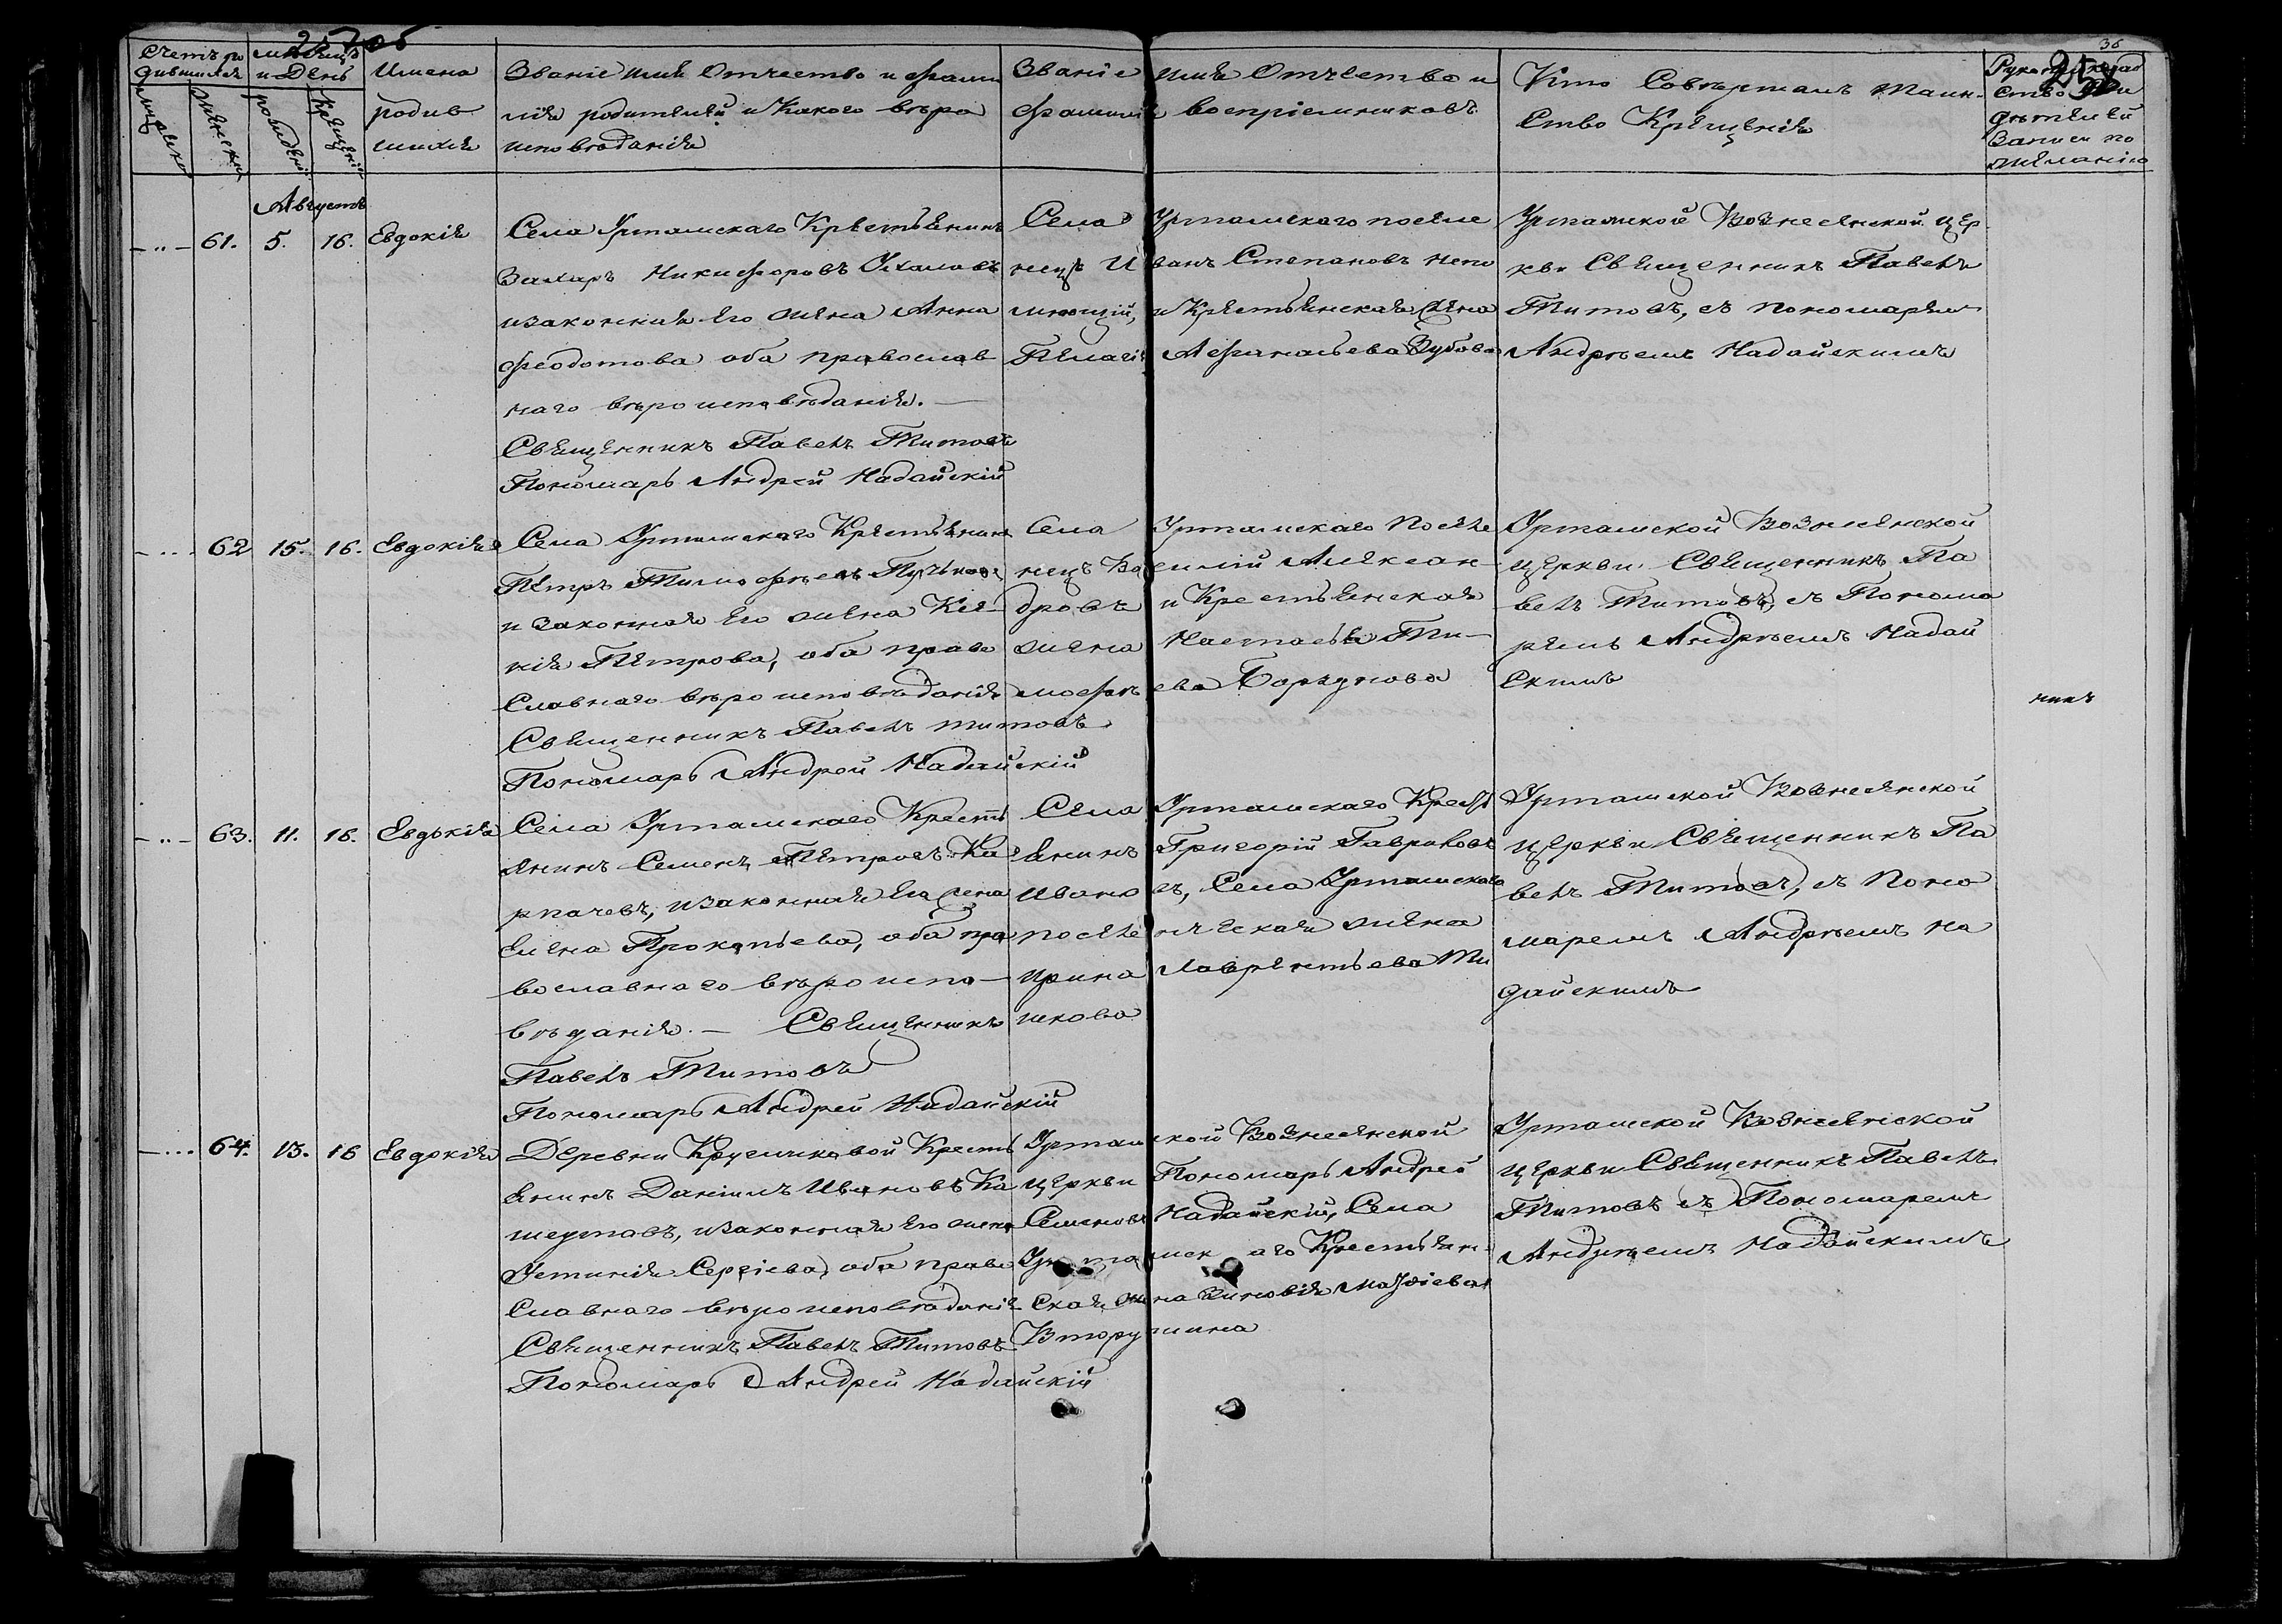 257 об
36
258
Счетъ ро
дившихся
Мужеска
Женска
Мѣсяцъ
и День
рожденiя
Крещенiя
Имена
родив
шихся
Званiе имя Отчество и фами
лiя родителей и Какого вѣро
исповѣданiя
Званiе имя Отчество и
фамилiя воспрiемниковъ
Кто Совершалъ таин-
ство Крещенiя
Рукоприклад
ство Сви
дѣтелей
Записи по
желанiю
Августъ
61. 5. 16. Евдокiя
Села Уртамскаго Крестьянинъ
Захаръ Никифоровъ
и законная Его жена Анна
Феодотова оба православ
наго вѣроисповѣданiя. —
Священникъ Павелъ Титовъ
Пономарь Андрей Надайскiй
Села Уртамскаго поселе
нецъ Иванъ Степановъ непо
мнющiй, и Крестьянская жена
Пелагiя Афанасьева Зубова
Уртамской Вознесенской цер
кви Священникъ Павелъ
Титовъ, съ пономаремъ
Андрѣемъ Надайскимъ
62 15. 16. Евдокiя
Села Уртамскаго Крестьянинъ
Петръ Тимофѣевъ
и законная Его жена Ксе-
нiя Петрова, оба право
славнаго вѣроисповѣданiя
Священникъ Павелъ Титовъ
Пономарь Андрей Надайскiй
Села Уртамскаго Поселе
нецъ Василiй Алексан-
дровъ и Крестьянская
жена Настасья Ти-
мофѣева
Уртамской Вознесенской
церкви Священникъ Па
велъ Титовъ, съ Понома
ремъ Андрѣемъ Надай
скимъ
никъ
63. 11. 16. Евдокiя
Села Уртамскаго Кресть
янинъ Семенъ Петровъ Ка
рпачевъ, и законная Его жена
Елена Прокопьева, оба пра
вославнаго вѣроиспо-
вѣданiя. — Священникъ
Павелъ Титовъ
Пономарь Андрей Надайскiй
Села Уртамскаго Кресть
янинъ Григорiй Гавриловъ
Ивановъ, Села Уртамскаго
поселенческая жена
Ирина Лаврентьева Ти
шкова
Уртамской Вознесенской
церкви Священникъ Па
велъ Титовъ, съ Поно
маремъ Андрѣемъ На
дайскимъ
64. 13. 16 Евдокiя
Деревни Кругликовой Кресть
янинъ Данiилъ Ивановъ Ка
шеутовъ, и законная Его жена
Устинiя Сергiева, оба право
славнаго вѣроисповѣданiя
Священникъ Павелъ Титовъ
Пономарь Андрей Надайскiй
Уртамской Вознесенской
церкви Пономарь Андрей
Семеновъ Надайскiй, Села
Уртамскаго Крестьян-
ская жена Зиновiя Матѳiева
Вторушина
Уртамской Вознесенской
церкви Священникъ Павелъ
Титовъ съ Пономаремъ
Андрѣемъ Надайскимъ